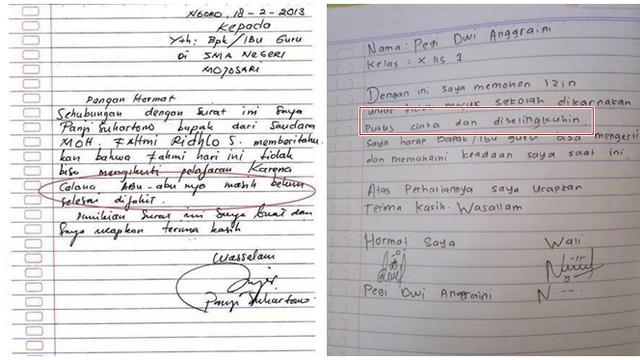 NGORO, 18-2-2013
Kepada
Yth: Bpk/Ibu Guru
Di SMA NEGERI
MOJOSARI
Dengan Hormat
Sehubungan dengan surat ini saya
Panji Suhartono bapak dari saudara
MOH. FAHMI RIDHLO S. memberitahu
kan bahwa Fahmi hari ini tidak
bisa mengikuti pelajaran karena
Celana Abu-abu nya masih belum
selesai dijahit.
Demikian surat ini saya buat dan
saya ucapkan terima kasih
Wassalam
Panji Suhartono
Nama: Pegi Dwi Anggraini
Kelas: X IIS 2
Dengan ini saya memohon Izin
untuk tidak masuk sekolah dikarnakan
Putus cinta dan diselingkuhin.
Saya harap Bapak/Ibu guru bisa mengerti
dan memahami keadaan saya saat ini.
Atas Perhatiannya saya Ucapkan
Terima kasih. Wasallam
Hormat Saya Wali
Pegi Dwi Anggraini N----